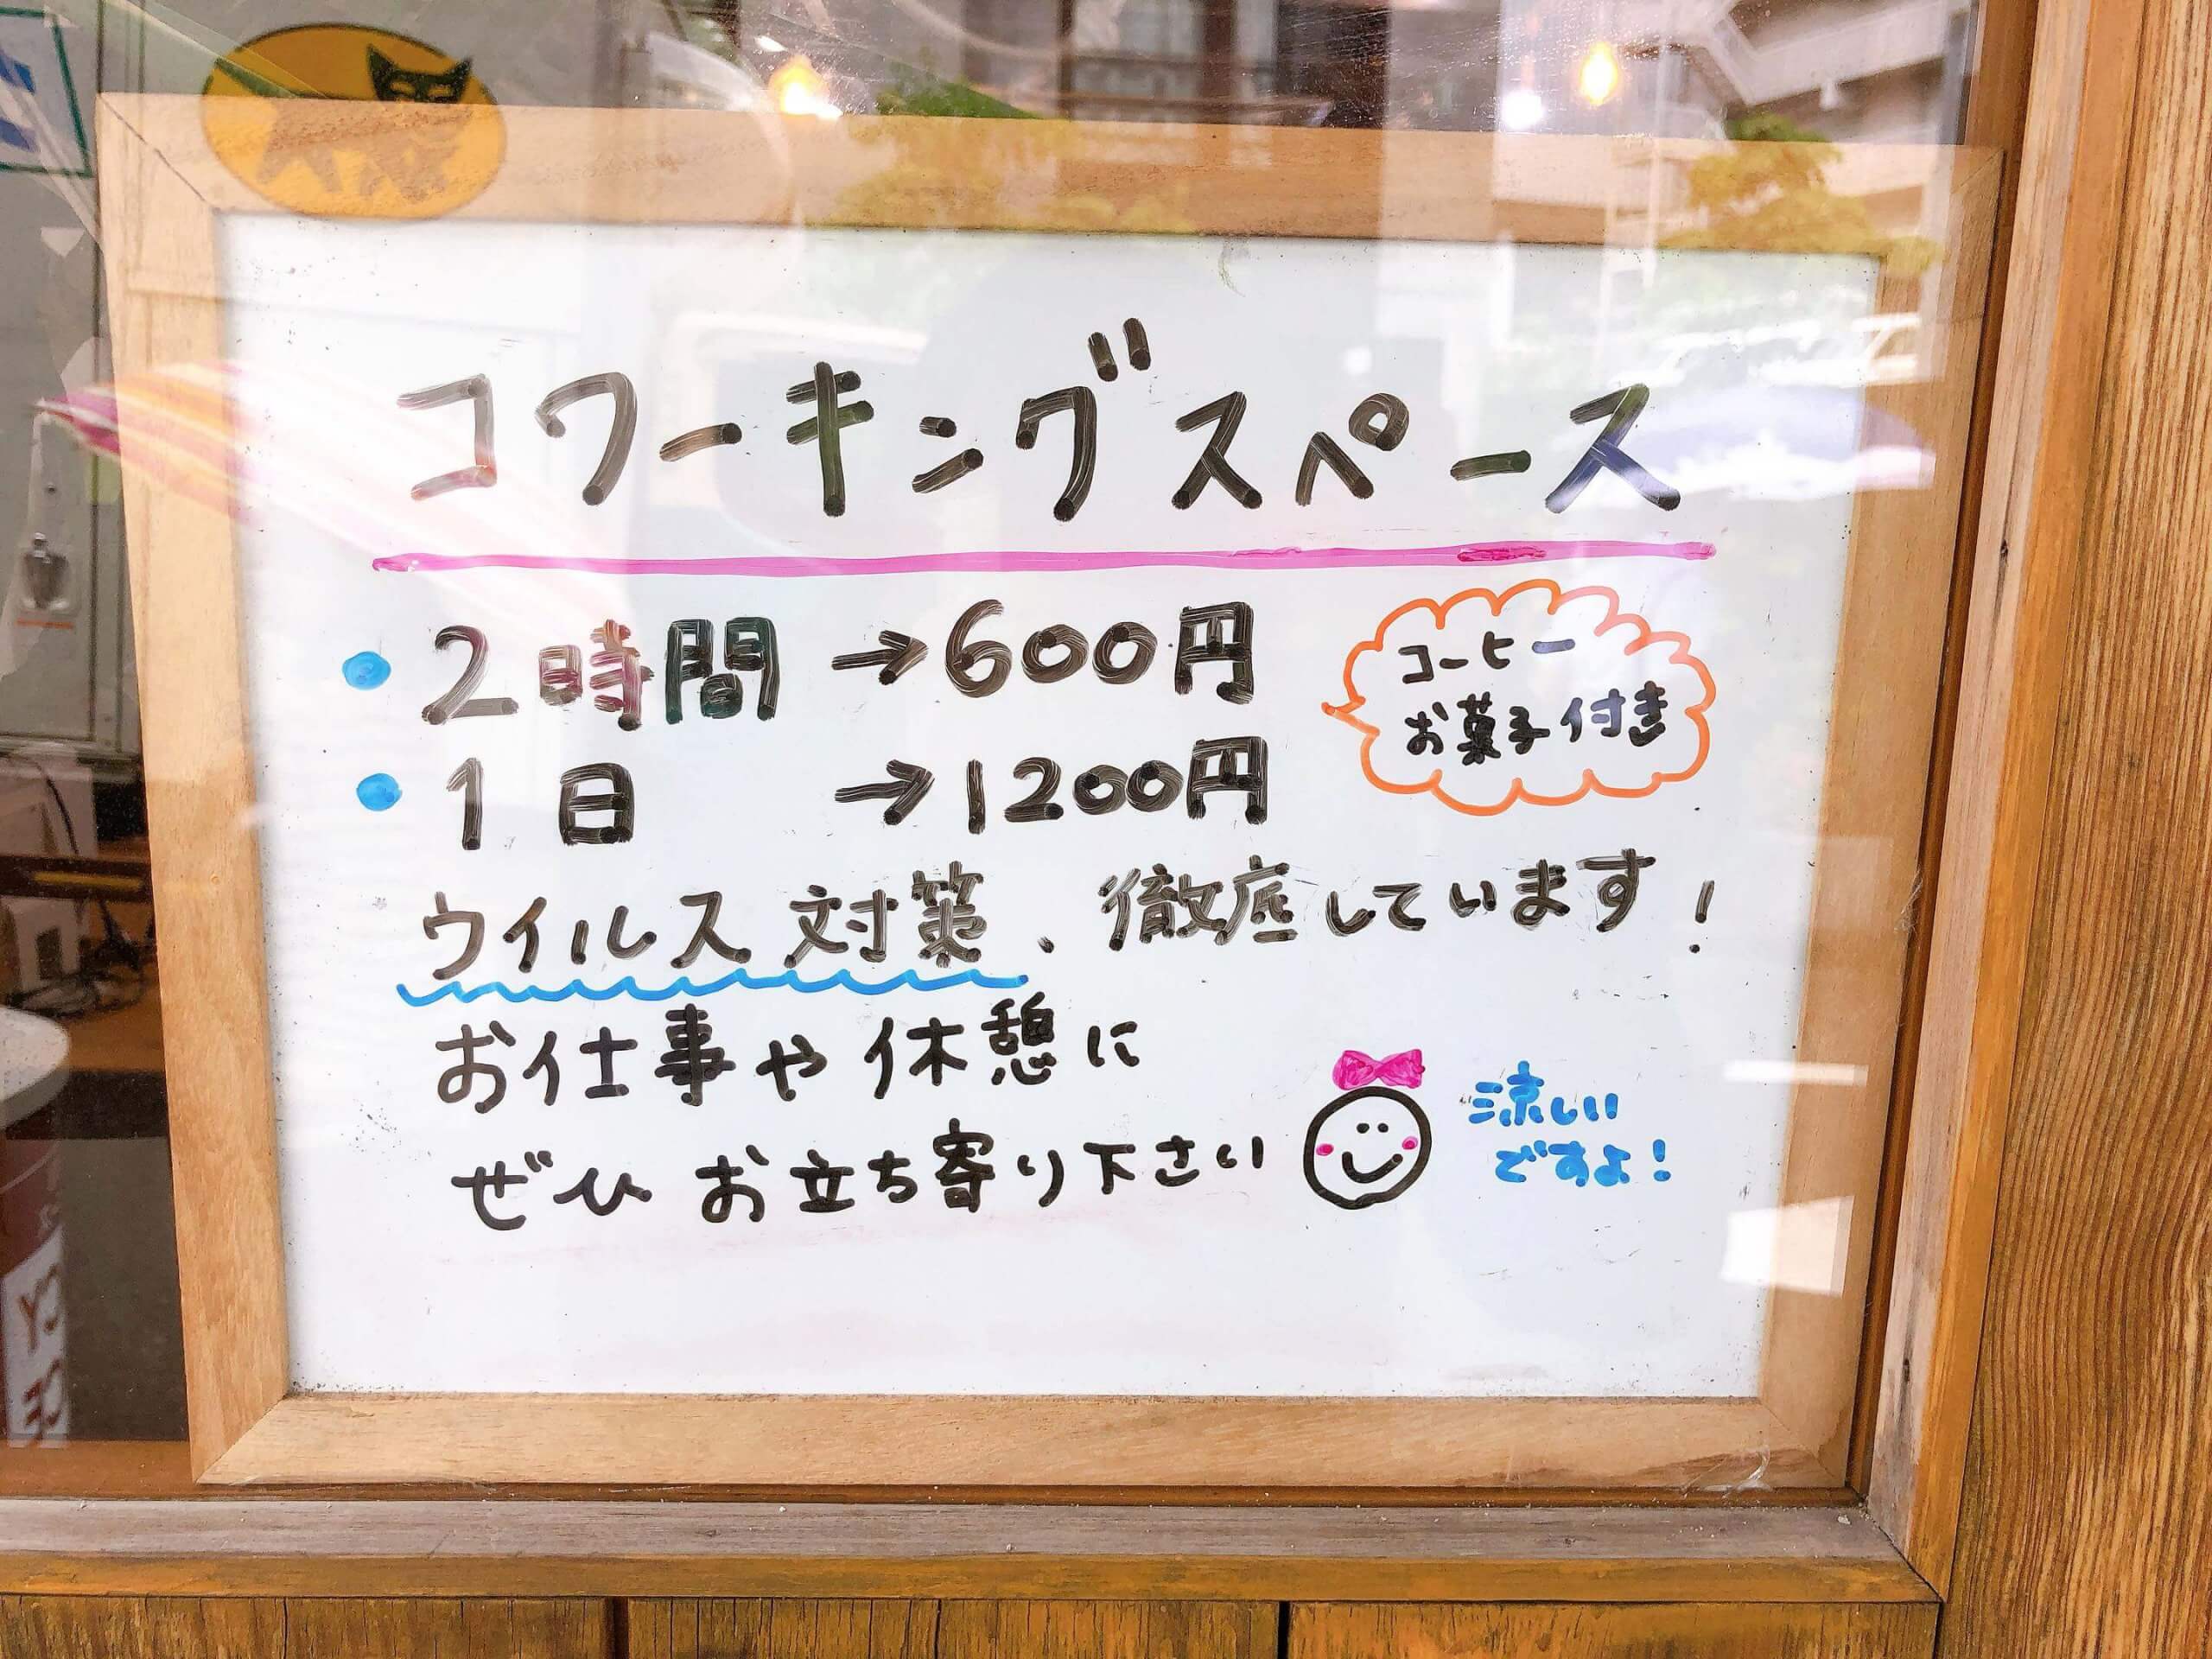 コワーキングスペース
• 2時間 →600円
• 1日 →1200円
コーヒー
お菓子付き
ウイルス対策、徹底しています!
お仕事や休憩に
ぜひお立ち寄り下さい
涼しい
ですよ!